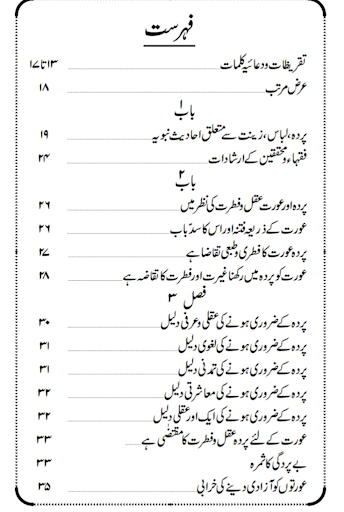 فہرست
تقریظات ودعائیہ کلمات ۱۳ تا ۱۷
عرض مرتب ۱۸
باب ۱
پردہ، لباس، زینت سے متعلق احادیث نبویہ ۱۹
فقہاء ومحققین کے ارشادات ۲۴
باب ۲
پردہ اور عورت عقل وفطرت کی نظر میں ۲۶
عورت کے ذریعہ فتنہ اور اس کا سدّ باب ۲۶
پردہ عورت کا فطری وطبعی تقاضا ہے ۲۷
عورت کو پردہ میں رکھنا غیرت اور فطرت کا تقاضہ ہے ۲۸
فصل ۳
پردہ کے ضروری ہونے کی عقلی وعرفی دلیل ۳۰
پردہ کے ضروری ہونے کی لغوی دلیل ۳۱
پردہ کے ضروری ہونے کی تمدنی دلیل ۳۱
پردہ کے ضروری ہونے کی معاشرتی دلیل ۳۲
پردہ کے ضروری ہونے کی ایک اور عقلی دلیل ۳۲
عورت کے لئے پردہ عقل وفطرت کا مقتضٰی ہے ۳۳
بے پردگی کا ثمرہ ۳۳
عورتوں کو آزادی دینے کی خرابی ۳۵